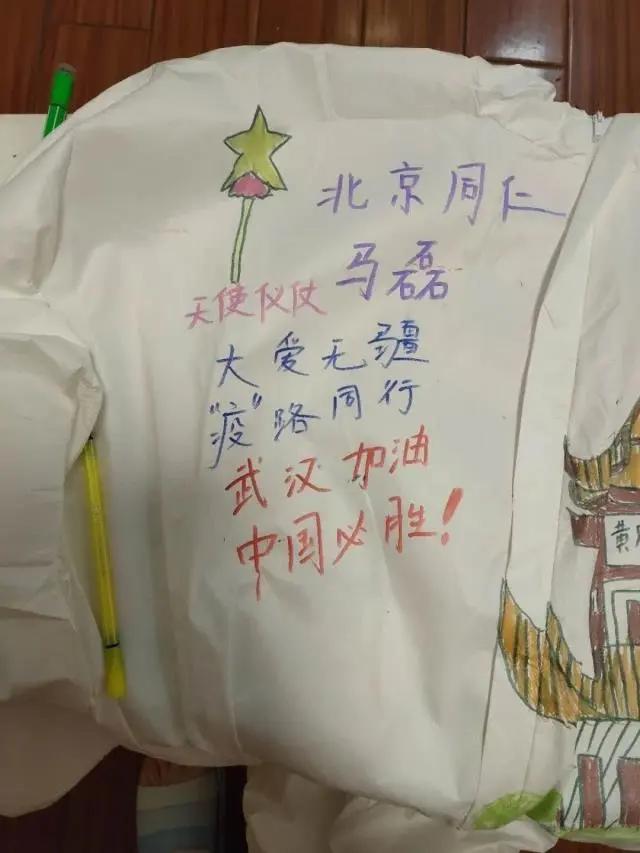 北京同仁
马磊
天使仪仗
大爱无疆
"疫"路同行
武汉加油
中国必胜！
黄